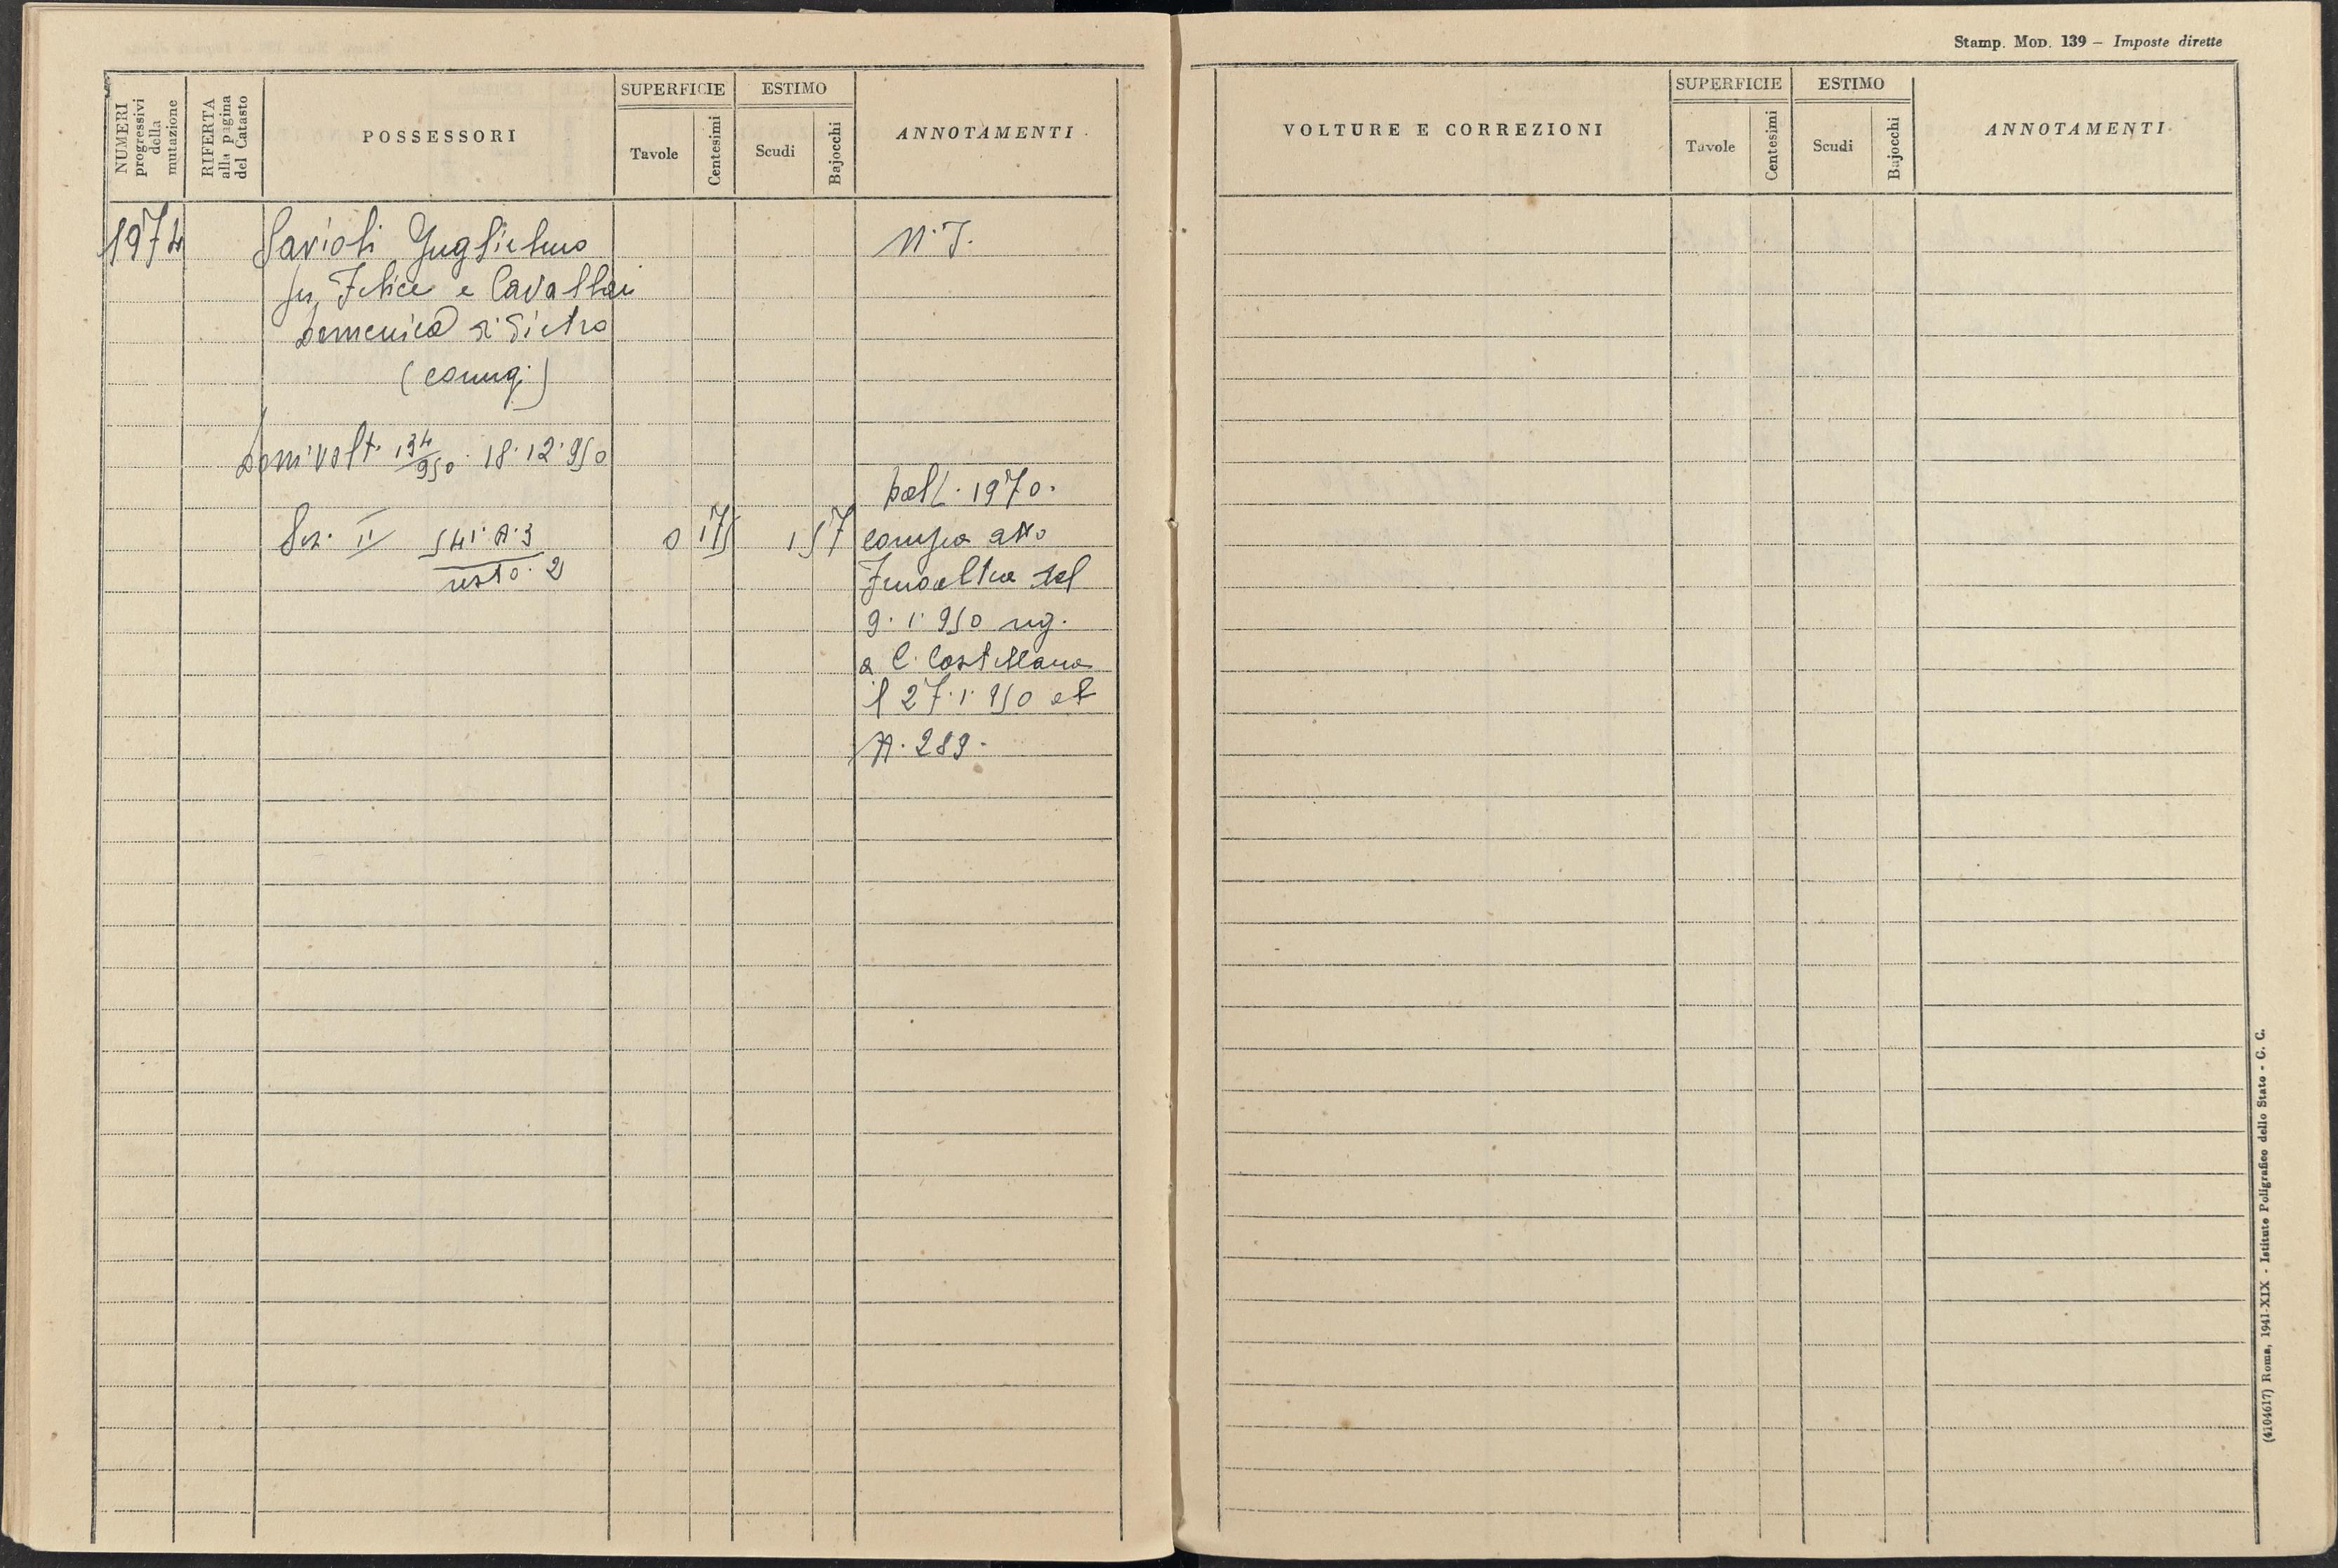 NUMERI progressivi della mutazione
RIFERTA alla pagina del Catasto
POSSESSORI
SUPERFICIE
Tavole
Centesimi
ESTIMO
Scudi
Bajocchi
ANNOTAMENTI
1974 Savioli Guglielmo N. I.
fu Felice e Cavallai
Domenica di Pietro
(coniugi)
Dom. Volt. 134/950. 18.12.950
dalla 1970.
Sez. II 541. A. 3 0 175 1 57 compra atto
resto. 2 del
9. 1. 950 reg.
a C. Castellana
il 27. 1. 950 al
N. 289.
Stamp. Mod. 139 – Imposte dirette
VOLTURE E CORREZIONI
SUPERFICIE
Tavole
Centesimi
ESTIMO
Scudi
Bajocchi
ANNOTAMENTI
(4104617) Roma, 1941-XIX - Istituto Poligrafico dello Stato - C. C.